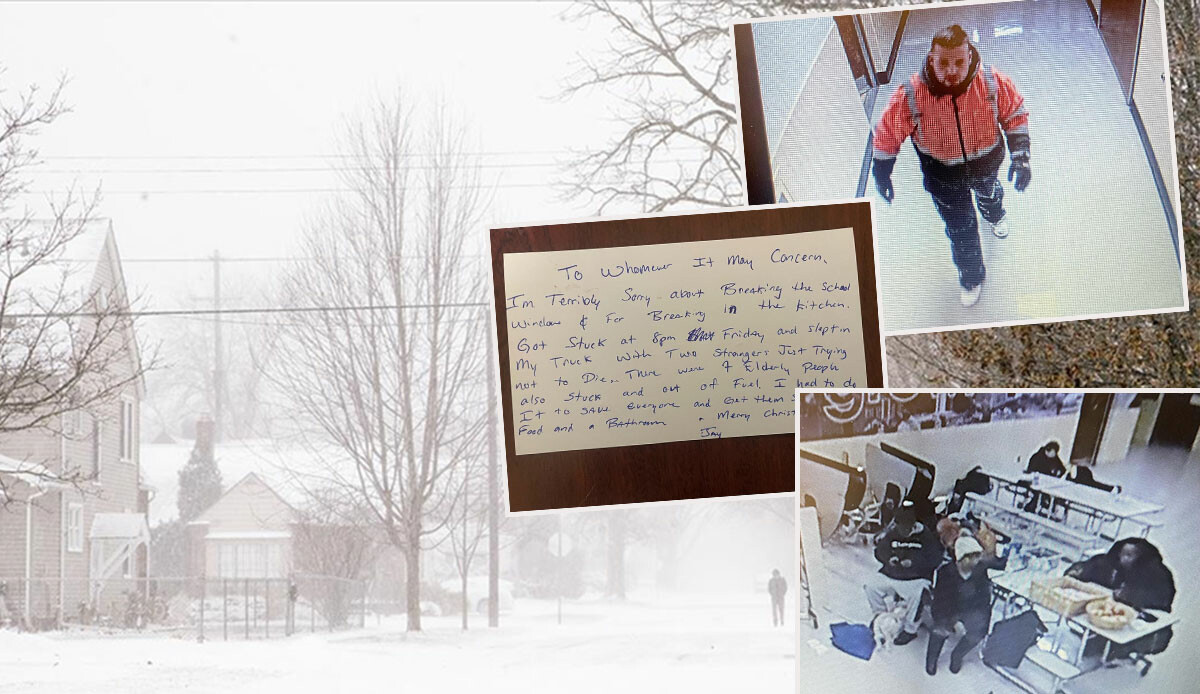 To Whomever It May Concern,
I'm Terribly Sorry about Breaking the School
Window & For Breaking in the Kitchen.
Got Stuck at 8pm Friday and slept in
My Truck with Two Strangers Just Trying
not to Die. There were 7 Elderly People
also Stuck and out of Fuel. I had to do
It to Save everyone and Get them
Food and a Bathroom. Merry Christ
Jay